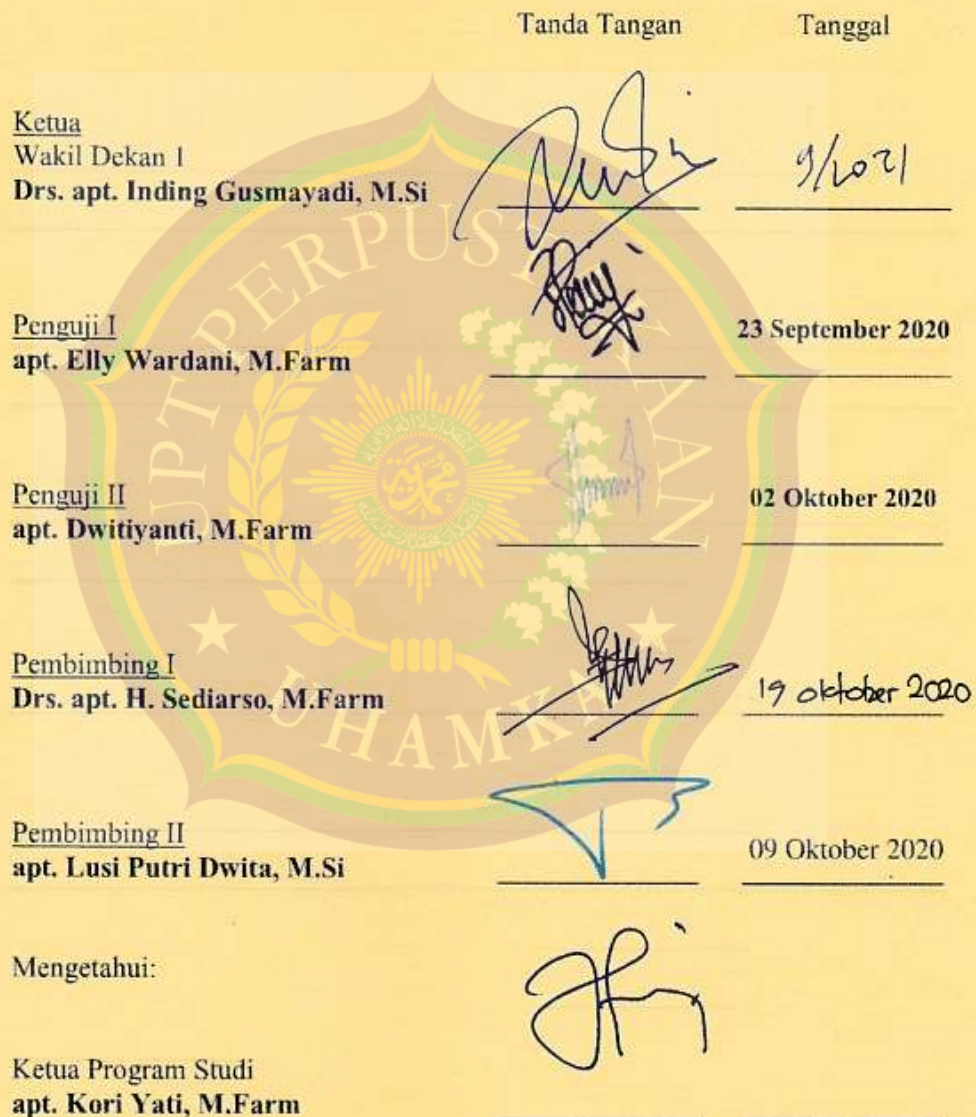 Tanda Tangan Tanggal
Ketua
Wakil Dekan I
Drs. apt. Inding Gusmayadi, M.Si
9/2021
Penguji I
apt. Elly Wardani, M.Farm
23 September 2020
Penguji II
apt. Dwitiyanti, M.Farm
02 Oktober 2020
Pembimbing I
Drs. apt. H. Sediarso, M.Farm
19 oktober 2020
Pembimbing II
apt. Lusi Putri Dwita, M.Si
09 Oktober 2020
Mengetahui:
Ketua Program Studi
apt. Kori Yati, M.Farm
UPT PERPUSTAKAAN
UHAMKA